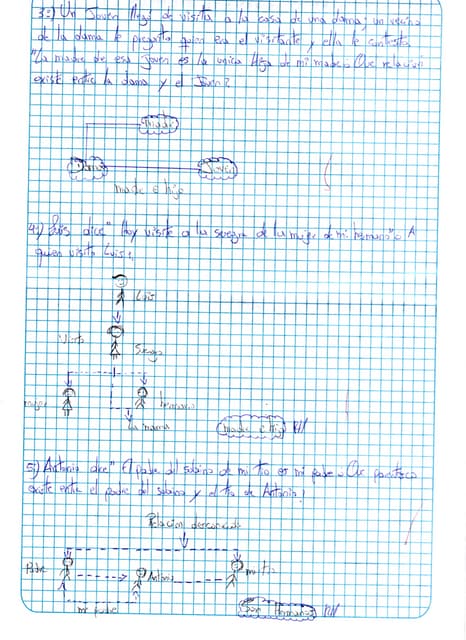 3:) Un Joven llegó de visita a la casa de una dama; un vecino
de la dama le pregunta quien era el visitante y ella le contesta
"La madre de ese Joven es la unica Hija de mi madre. Que relacion
existe entre la dama y el Joven?
madre
Dama
Joven
madre e hijo
4:) Luis dice" Hoy visite a la suegra de la mujer de mi hermano". A
quien visito Luis?
Luis
Visito
Suegra
mujer
hermano
La mama
madre e hijo
5:) Antonio dice" El padre del sobrino de mi tio es mi padre. Que parentesco
existe entre el padre del sobrino y el tio de Antonio?
Relacion desconocida
Padre
Antonio
mi tio
mi padre
Son Hermanos